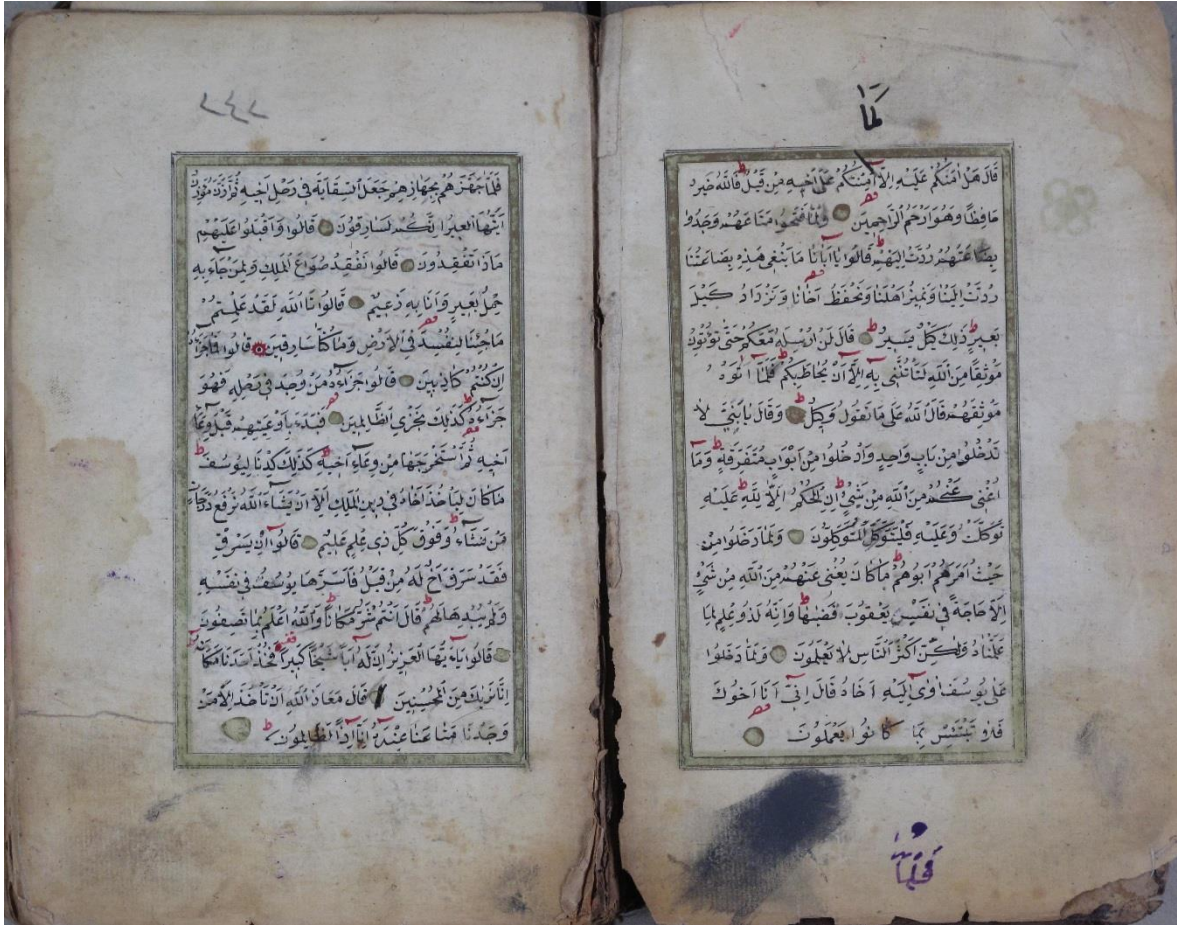 كَمَا
قَالَ هَلْ اٰمَنُكُمْ عَلَيْهِ اِلَّا اَمِنْتُكُمْ عَلٰٓى اَخِيهِ مِنْ قَبْلُ فَاللّٰهُ خَيْرٌ
حَافِظًا وَهُوَ اَرْحَمُ الرَّاحِمِينَ وَلَمَّا فَتَحُوا مَتَاعَهُمْ وَجَدُوا
بِضَاعَتَهُمْ رُدَّتْ اِلَيْهِمْ قَالُوا يَٓا اَبَانَا مَا نَبْغِى هٰذِهِ بِضَاعَتُنَا
رُدَّتْ اِلَيْنَا وَنَمِيرُ اَهْلَنَا وَنَحْفَظُ اَخَانَا وَنَزْدَادُ كَيْلَ
بَعِيرٍ ذٰلِكَ كَيْلٌ يَسِيرٌ قَالَ لَنْ اُرْسِلَهُ مَعَكُمْ حَتّٰى تُؤْتُونِ
مَوْثِقًا مِنَ اللّٰهِ لَتَأْتُنَّنِى بِهِٓ اِلَّٓا اَنْ يُحَاطَ بِكُمْ فَلَمَّٓا اٰتَوْهُ
مَوْثِقَهُمْ قَالَ اللّٰهُ عَلٰى مَا نَقُولُ وَكِيلٌ وَقَالَ يَا بَنِىَّ لَا
تَدْخُلُوا مِنْ بَابٍ وَاحِدٍ وَادْخُلُوا مِنْ اَبْوَابٍ مُتَفَرِّقَةٍ وَمَٓا
اُغْنِى عَنْكُمْ مِنَ اللّٰهِ مِنْ شَىْءٍ اِنِ الْحُكْمُ اِلَّا لِلّٰهِ عَلَيْهِ
تَوَكَّلْتُ وَعَلَيْهِ فَلْيَتَوَكَّلِ الْمُتَوَكِّلُونَ وَلَمَّا دَخَلُوا مِنْ
حَيْثُ اَمَرَهُمْ اَبُوهُمْ مَا كَانَ يُغْنِى عَنْهُمْ مِنَ اللّٰهِ مِنْ شَىْءٍ
اِلَّا حَاجَةً فِى نَفْسِ يَعْقُوبَ قَضٰيهَا وَاِنَّهُ لَذُو عِلْمٍ لِمَا
عَلَّمْنَاهُ وَلٰكِنَّ اَكْثَرَ النَّاسِ لَا يَعْلَمُونَ وَلَمَّا دَخَلُوا
عَلٰى يُوسُفَ اٰوٰٓى اِلَيْهِ اَخَاهُ قَالَ اِنِّٓى اَنَا اَخُوكَ
فَلَا تَبْتَئِسْ بِمَا كَانُوا يَعْمَلُونَ
فَلَمَّا
فَلَمَّا جَهَّزَهُمْ بِجَهَازِهِمْ جَعَلَ السِّقَايَةَ فِى رَحْلِ اَخِيهِ ثُمَّ اَذَّنَ مُؤَذِّنٌ
اَيَّتُهَا الْعِيرُ اِنَّكُمْ لَسَارِقُونَ قَالُوا وَاَقْبَلُوا عَلَيْهِمْ
مَاذَا تَفْقِدُونَ قَالُوا نَفْقِدُ صُوَاعَ الْمَلِكِ وَلِمَنْ جَٓاءَ بِهِ
حِمْلُ بَعِيرٍ وَاَنَا بِهِ زَعِيمٌ قَالُوا تَاللّٰهِ لَقَدْ عَلِمْتُمْ
مَا جِئْنَا لِنُفْسِدَ فِى الْاَرْضِ وَمَا كُنَّا سَارِقِينَ قَالُوا فَمَا جَزَٓاؤُهُ
اِنْ كُنْتُمْ كَاذِبِينَ قَالُوا جَزَٓاؤُهُ مَنْ وُجِدَ فِى رَحْلِهِ فَهُوَ
جَزَٓاؤُهُ كَذٰلِكَ نَجْزِى الظَّالِمِينَ فَبَدَءَ بِاَوْعِيَتِهِمْ قَبْلَ وِعَٓاءِ
اَخِيهِ ثُمَّ اسْتَخْرَجَهَا مِنْ وِعَٓاءِ اَخِيهِ كَذٰلِكَ كِدْنَا لِيُوسُفَ
مَا كَانَ لِيَأْخُذَ اَخَاهُ فِى دِينِ الْمَلِكِ اِلَّٓا اَنْ يَشَٓاءَ اللّٰهُ نَرْفَعُ دَرَجَاتٍ
مَنْ نَشَٓاءُ وَفَوْقَ كُلِّ ذِى عِلْمٍ عَلِيمٌ قَالُٓوا اِنْ يَسْرِقْ
فَقَدْ سَرَقَ اَخٌ لَهُ مِنْ قَبْلُ فَاَسَرَّهَا يُوسُفُ فِى نَفْسِهِ
وَلَمْ يُبْدِهَا لَهُمْ قَالَ اَنْتُمْ شَرٌّ مَكَانًا وَاللّٰهُ اَعْلَمُ بِمَا تَصِفُونَ
قَالُوا يَٓا اَيُّهَا الْعَزِيزُ اِنَّ لَهُٓ اَبًا شَيْخًا كَبِيرًا فَخُذْ اَحَدَنَا مَكَانَهُ
اِنَّا نَرٰيكَ مِنَ الْمُحْسِنِينَ قَالَ مَعَاذَ اللّٰهِ اَنْ نَأْخُذَ اِلَّا مَنْ
وَجَدْنَا مَتَاعَنَا عِنْدَهُٓ اِنَّٓا اِذًا لَظَالِمُونَ